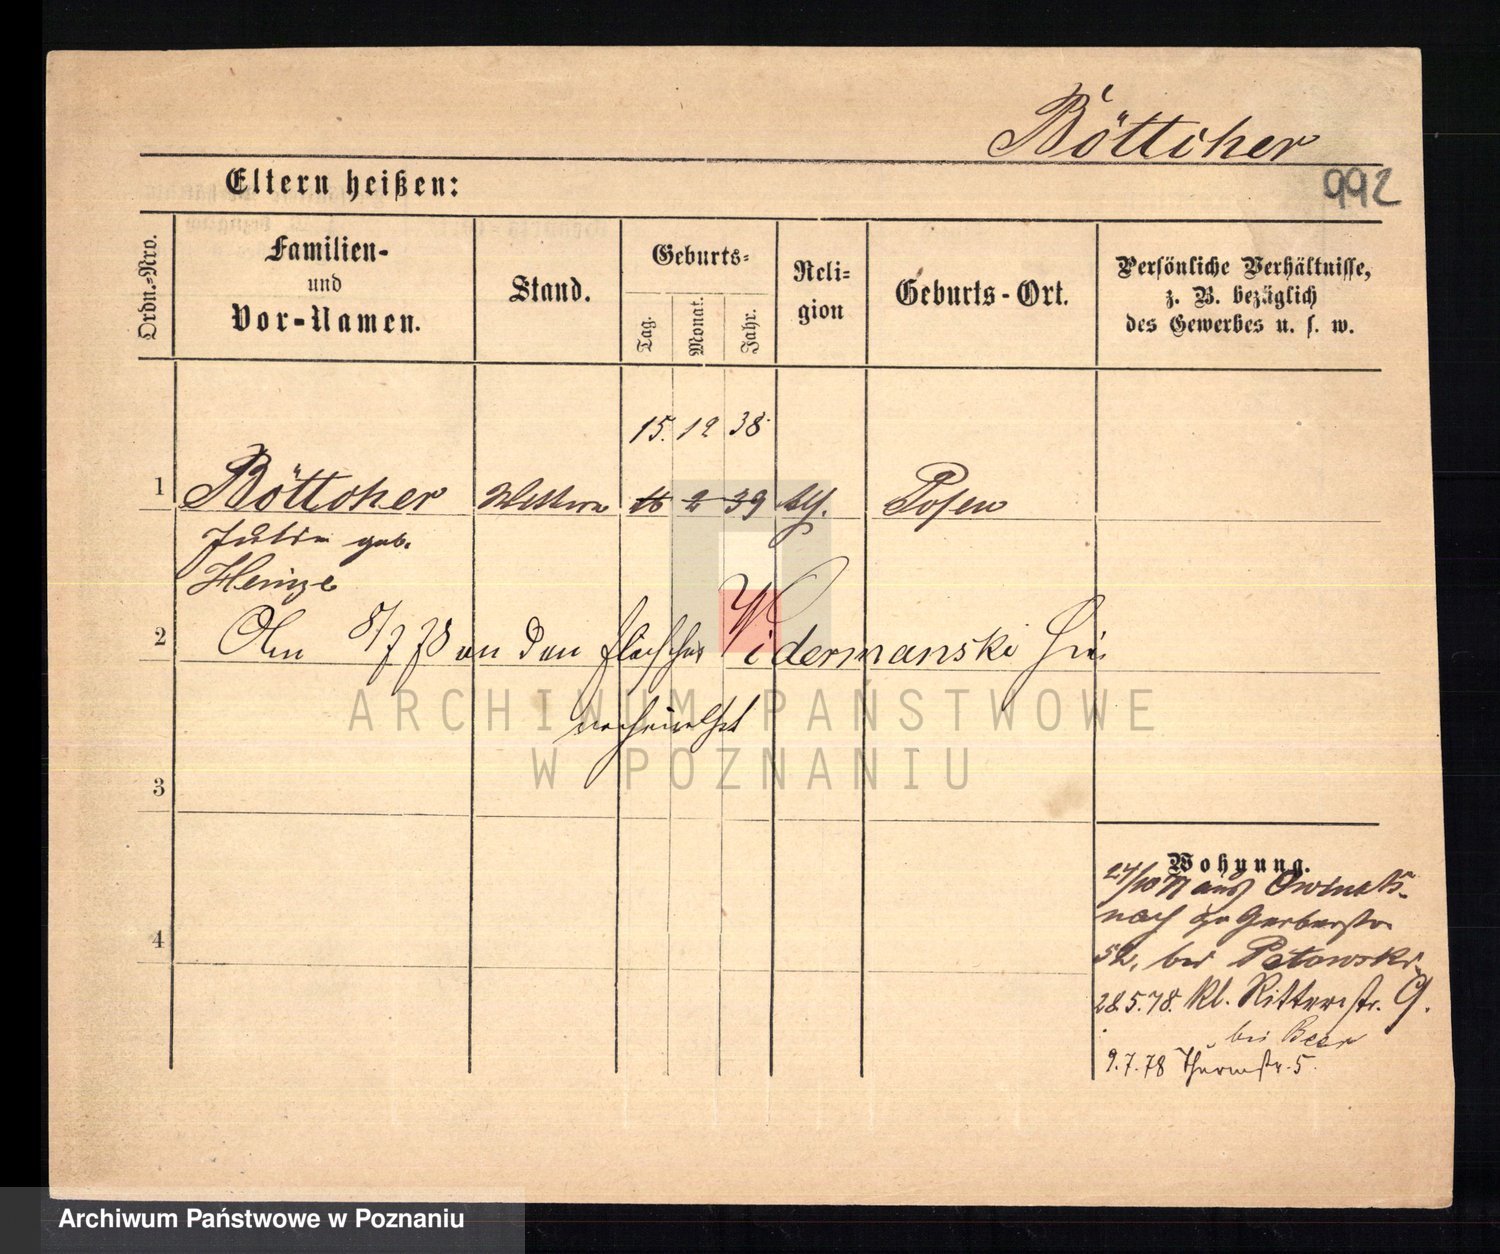 Böttcher
992
Eltern heißen:
Ordn.-Nro.
Familien-
und
Vor-Namen.
Stand.
Geburts-
Tag.
Monat.
Jahr.
Reli-
gion
Geburts-Ort.
Persönliche Verhältnisse,
z. B. bezüglich
des Gewerbes u. s. w.
15. 12 38
1 Böttcher Wittwe 16 2 39 Posen
geb.
Heinze
2 Am 8/7 78 an den Fleischer Widermanski hier
verheirathet
ARCHIWUM PAŃSTWOWE
W POZNANIU
3
4
Wohnung.
24/10 77 aus Owinsk
nach Gerberstr.
52, bei Petowski
28.5.78. kl. Ritterstr. 9.
bei Beer
9.7.78 Thurmstr. 5.
Archiwum Państwowe w Poznaniu